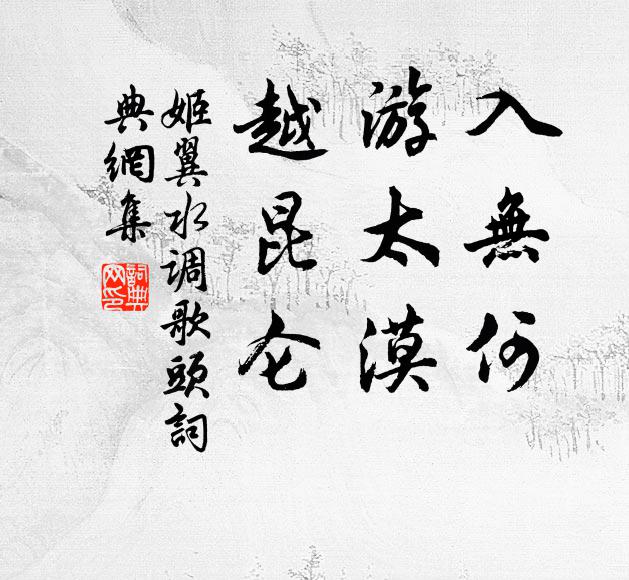 入無何
游太漠
越昆仑
姬翼水调歌頭詞
典網集
詞典
网印